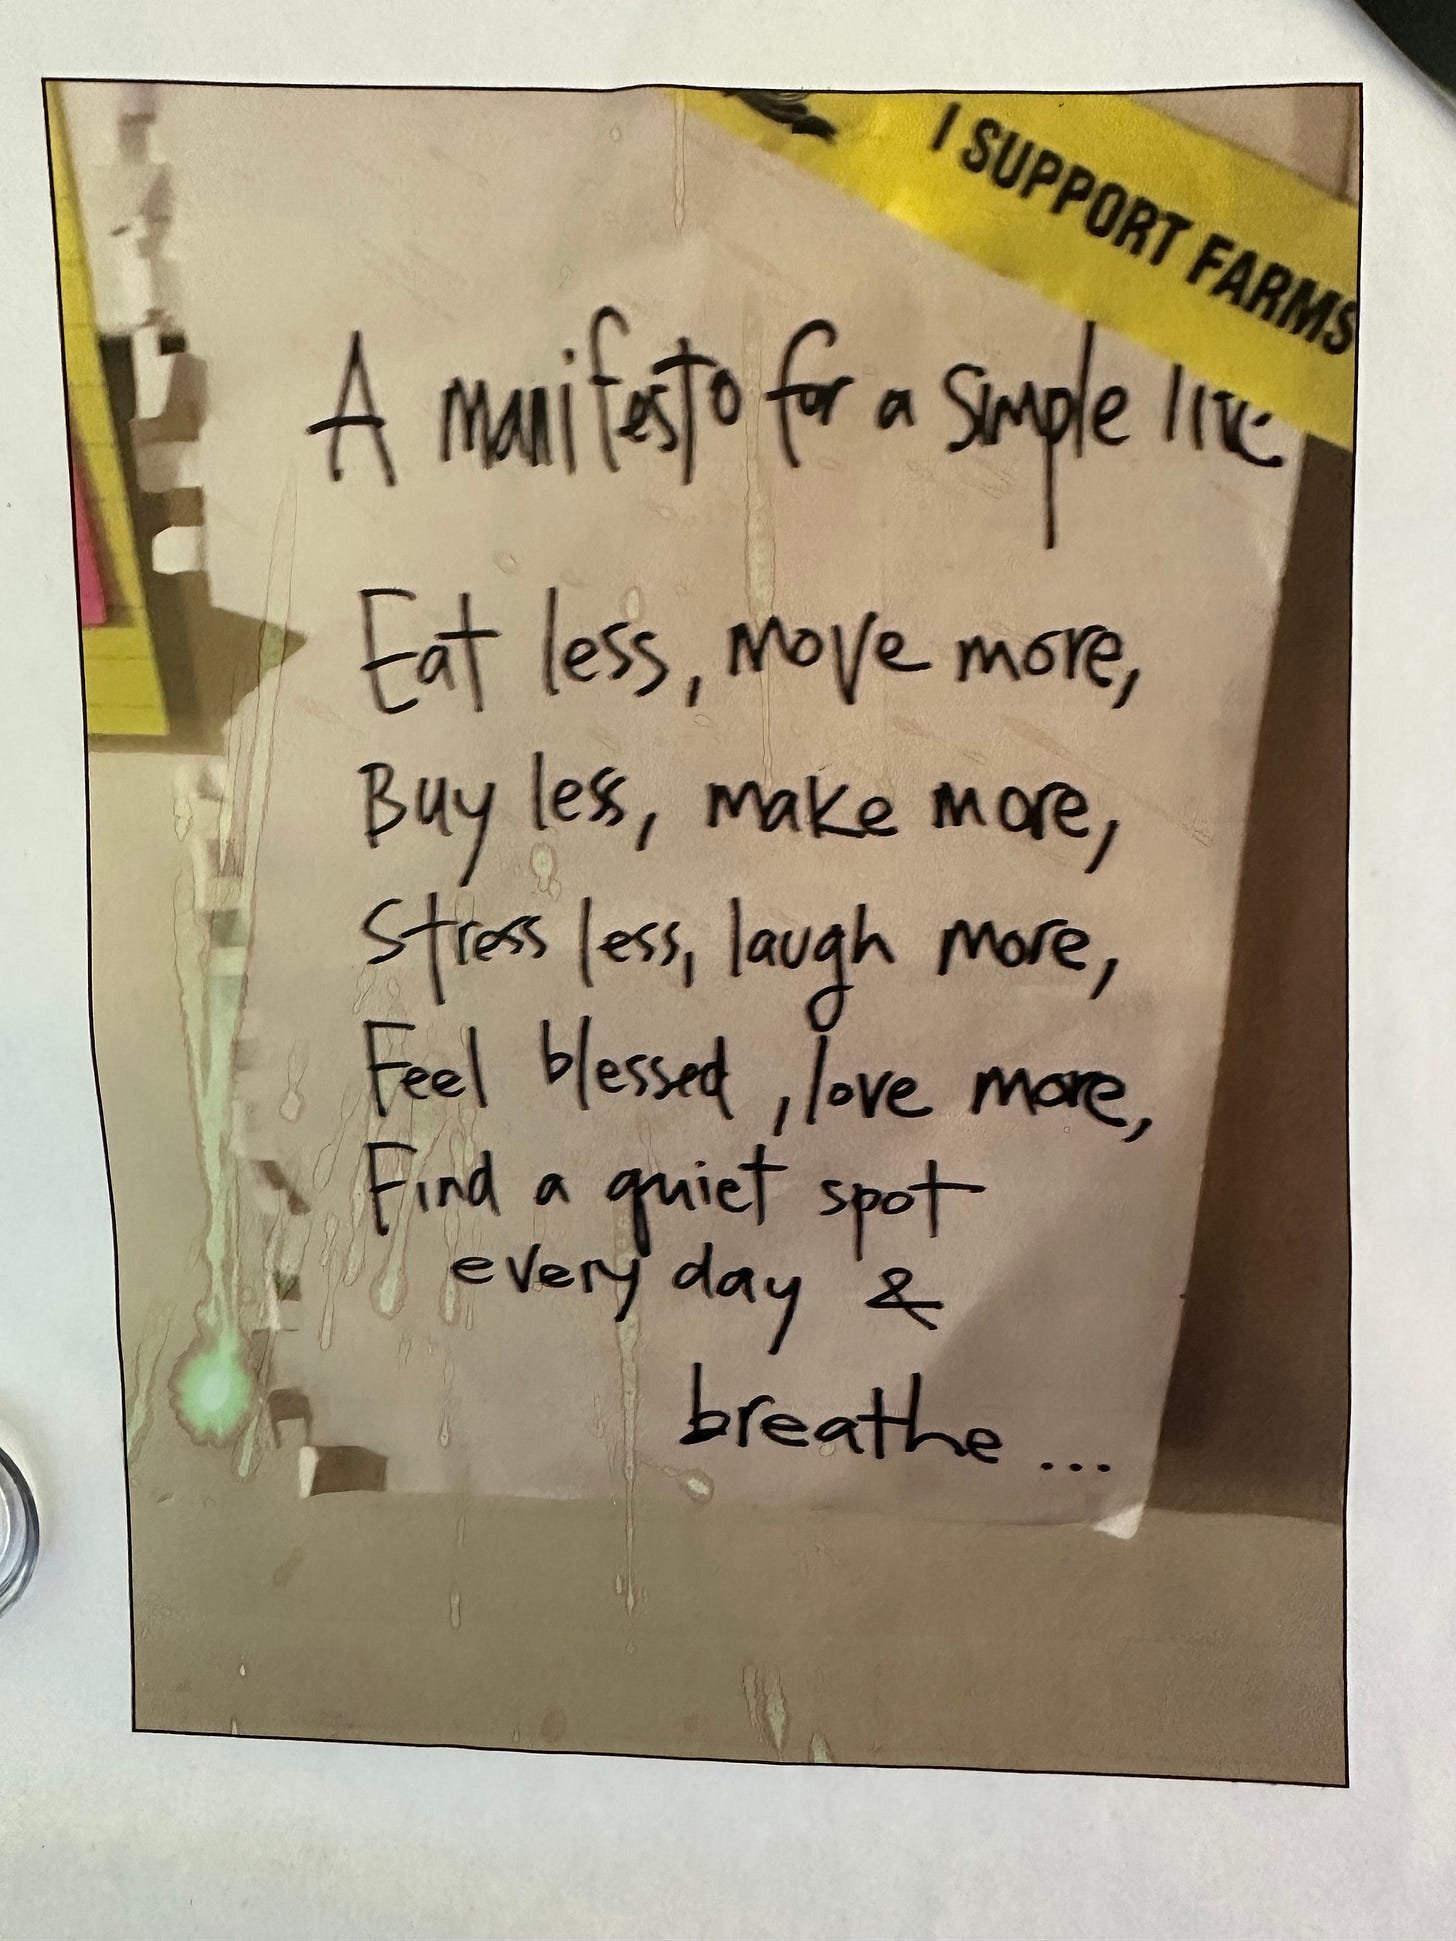 I SUPPORT FARMS
A manifesto for a simple life
Eat less, move more,
Buy less, make more,
Stress less, laugh more,
Feel blessed, love more,
Find a quiet spot
every day &
breathe...